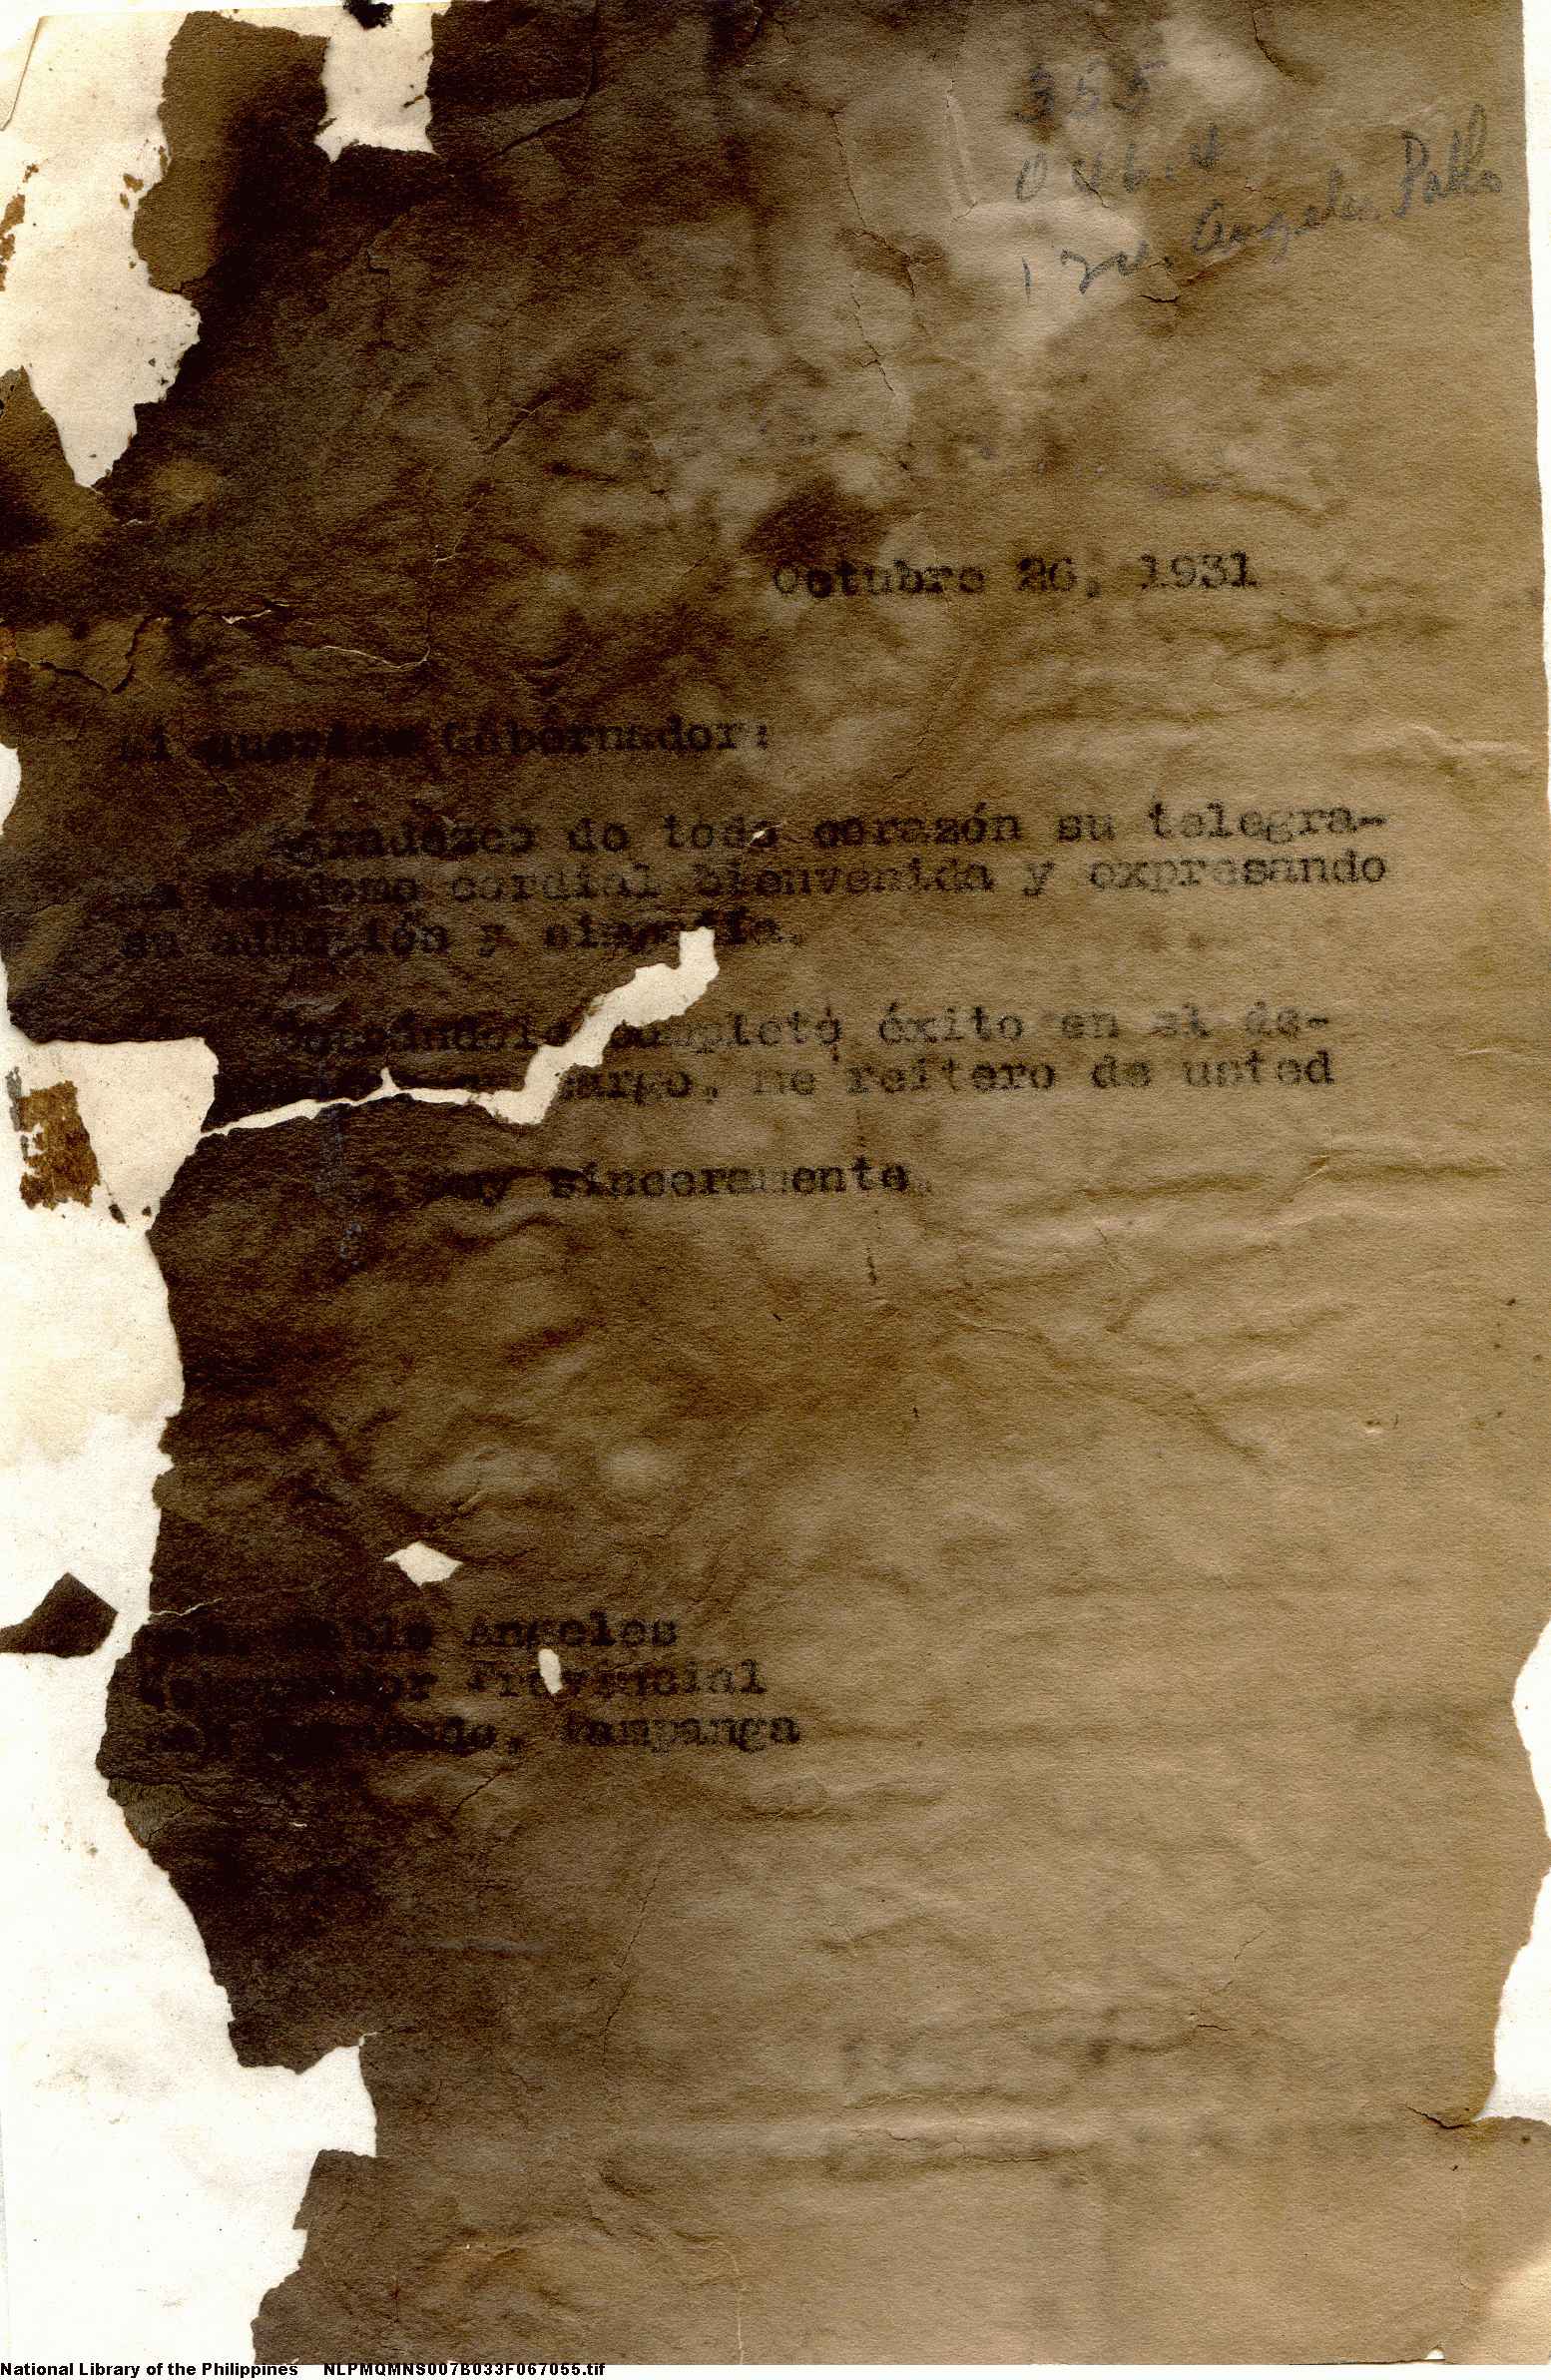 355
046.4
Angeles, Pablo
Octubre 26, 1931
Mi querido Gobernador:
Agradezco de todo corazón su telegra-
ma dándome cordial bienvenida y expresando
su adhesión y simpatía.
Deseándole completo éxito en el de-
cargo, me reitero de usted
Muy sinceramente
Hon. Pablo Angeles
Gobernador Provincial
San Fernando, Pampanga
National Library of the Philippines NLPMQMNS007B033F067055.tif